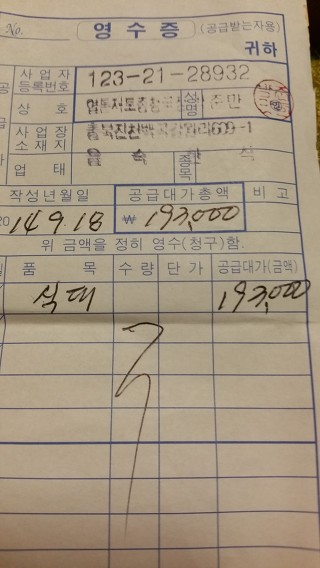 No. 영수증 (공급받는자용)
귀하
사업자등록번호 123-21-28932
상호 성명 준만
사업장소재지 609-1
업태 음 식 종목 한 식
작성년월일 공급대가총액 비고
2014 9. 18 ₩ 193,000
위 금액을 정히 영수(청구)함.
품목 수량 단가 공급대가(금액)
식대 193,000